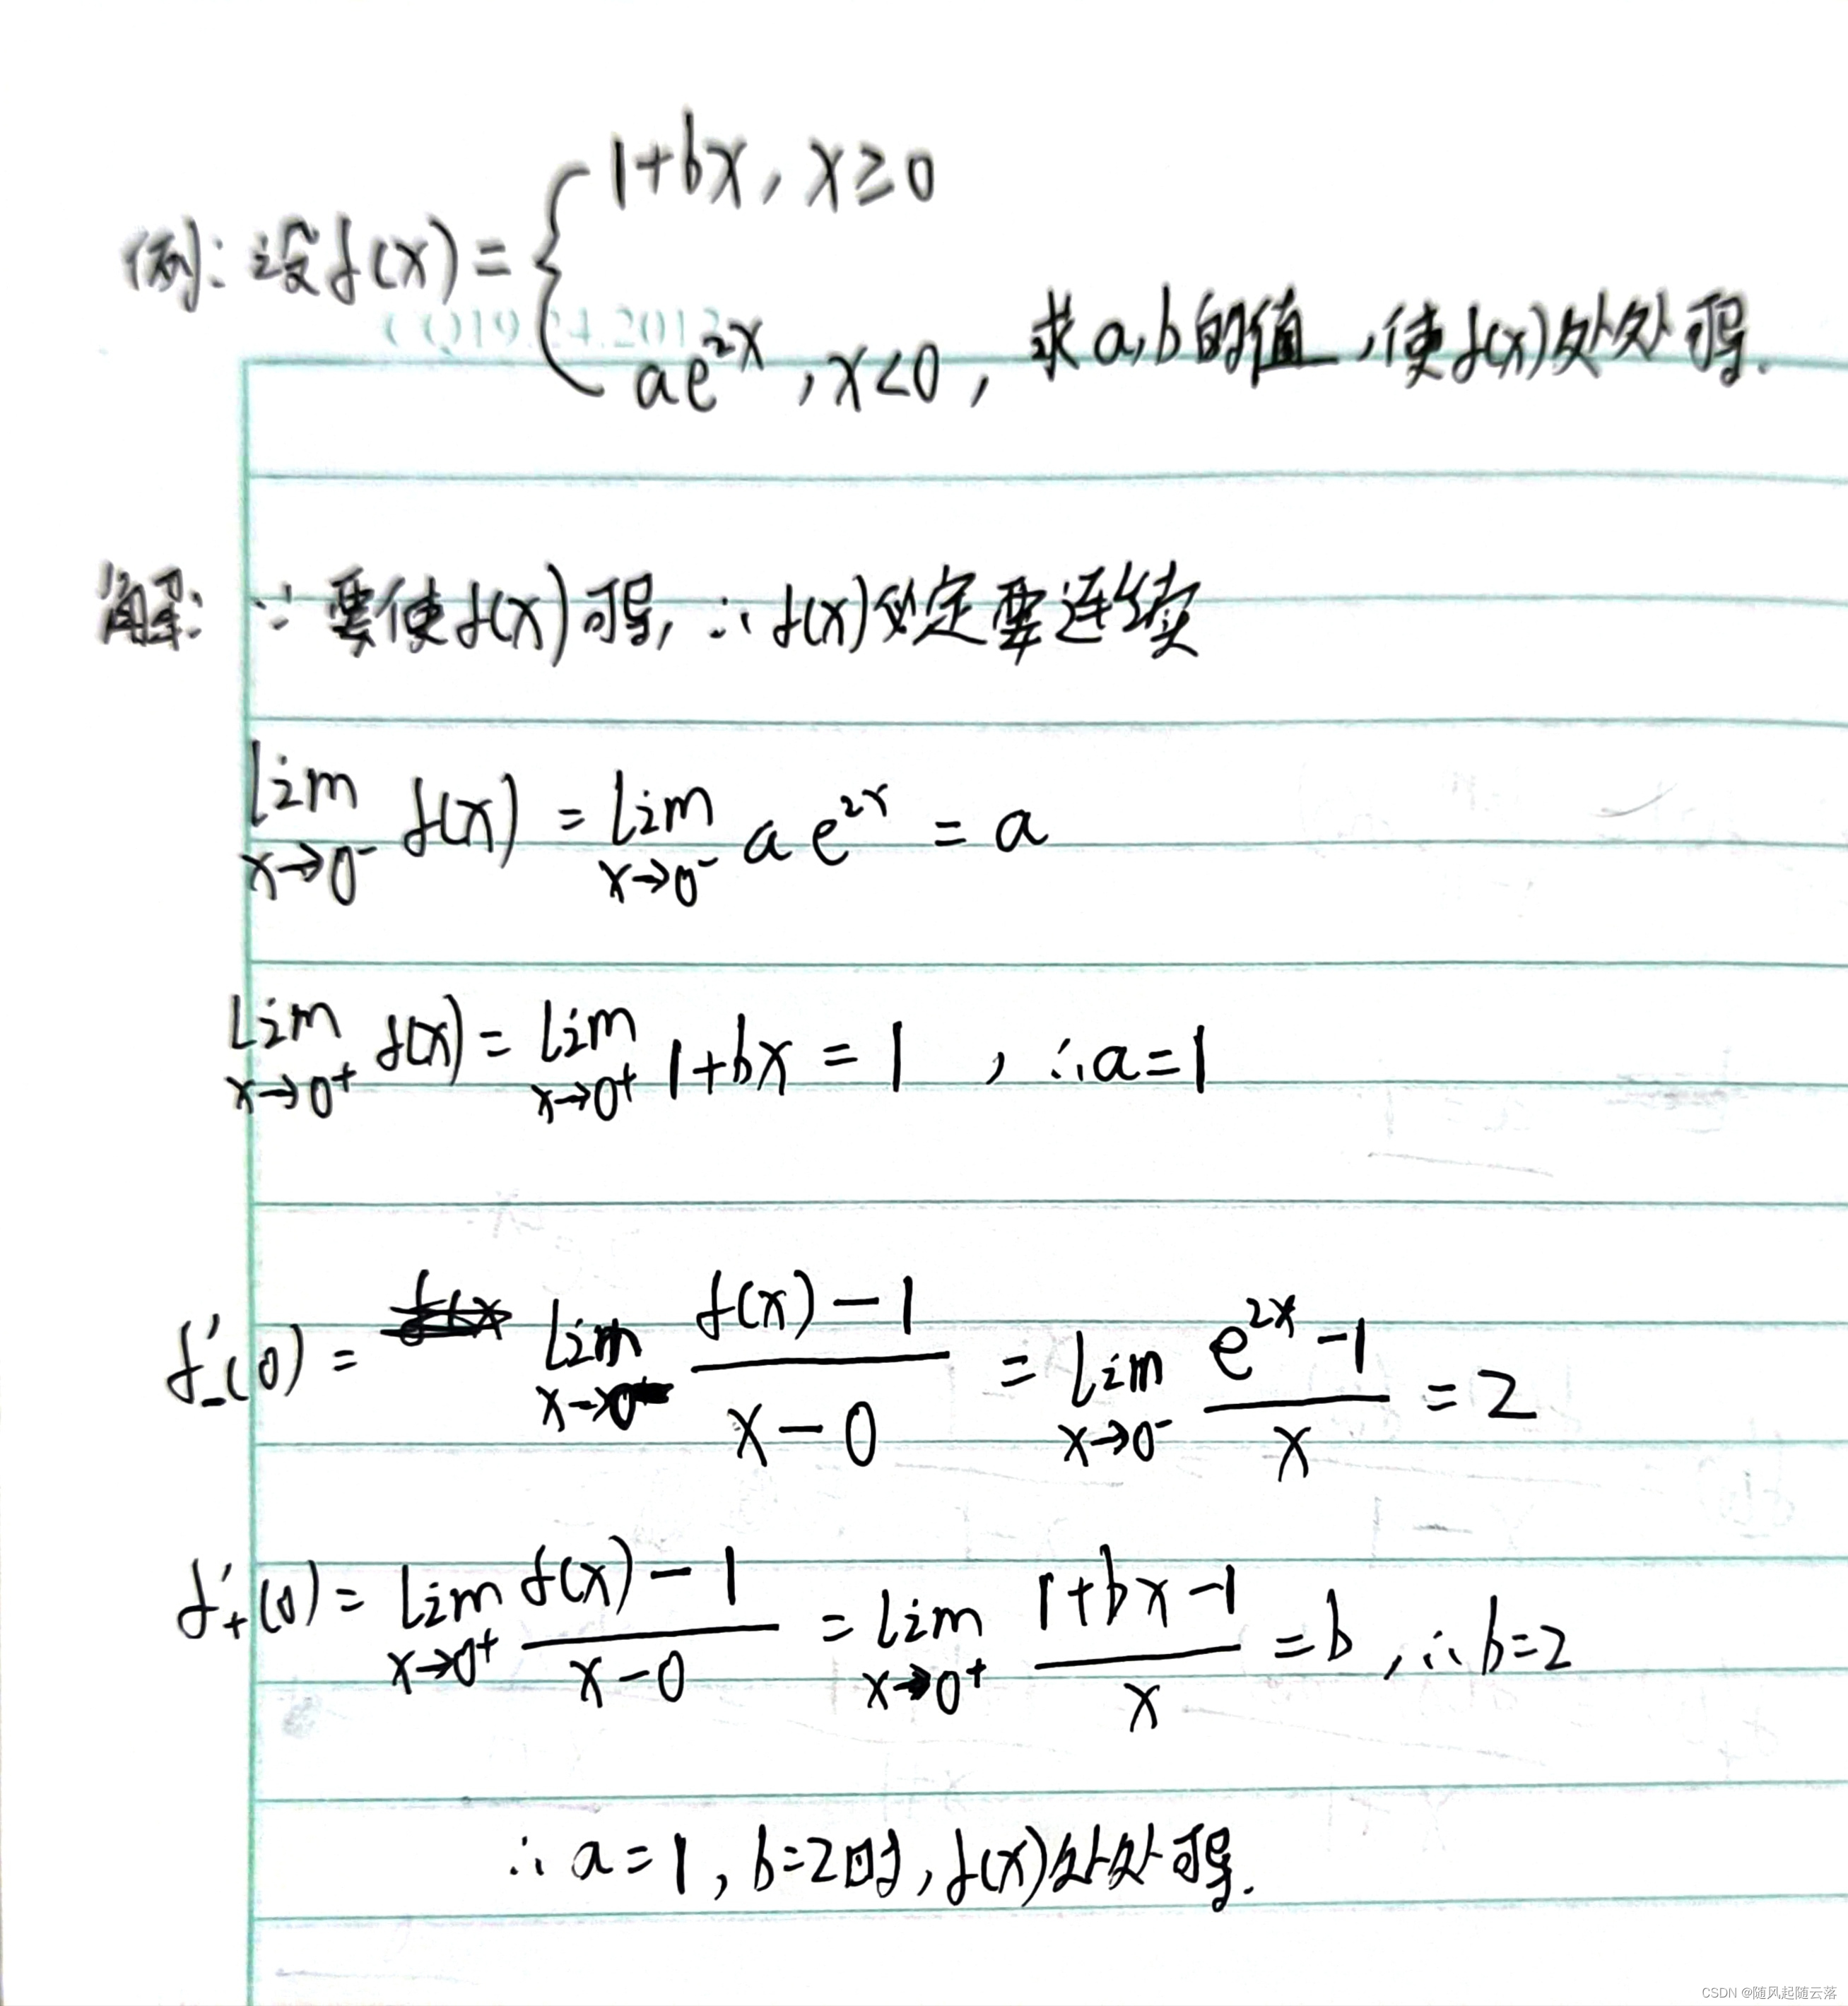 例: 设f(x) = { 1+bx, x≥0
ae^{2x}, x<0, 求a,b的值,使f(x)处处可导.
解: ∵ 要使f(x)可导, ∴ f(x)必定要连续
lim_{x→0⁻} f(x) = lim_{x→0⁻} a e^{2x} = a
lim_{x→0⁺} f(x) = lim_{x→0⁺} 1+bx = 1 , ∴ a=1
f'₋(0) = lim_{x→0⁻} \frac{f(x)-1}{x-0} = lim_{x→0⁻} \frac{e^{2x}-1}{x} = 2
f'₊(0) = lim_{x→0⁺} \frac{f(x)-1}{x-0} = lim_{x→0⁺} \frac{1+bx-1}{x} = b , ∴ b=2
∴ a=1, b=2时, f(x)处处可导.
CSDN @随风起随云落